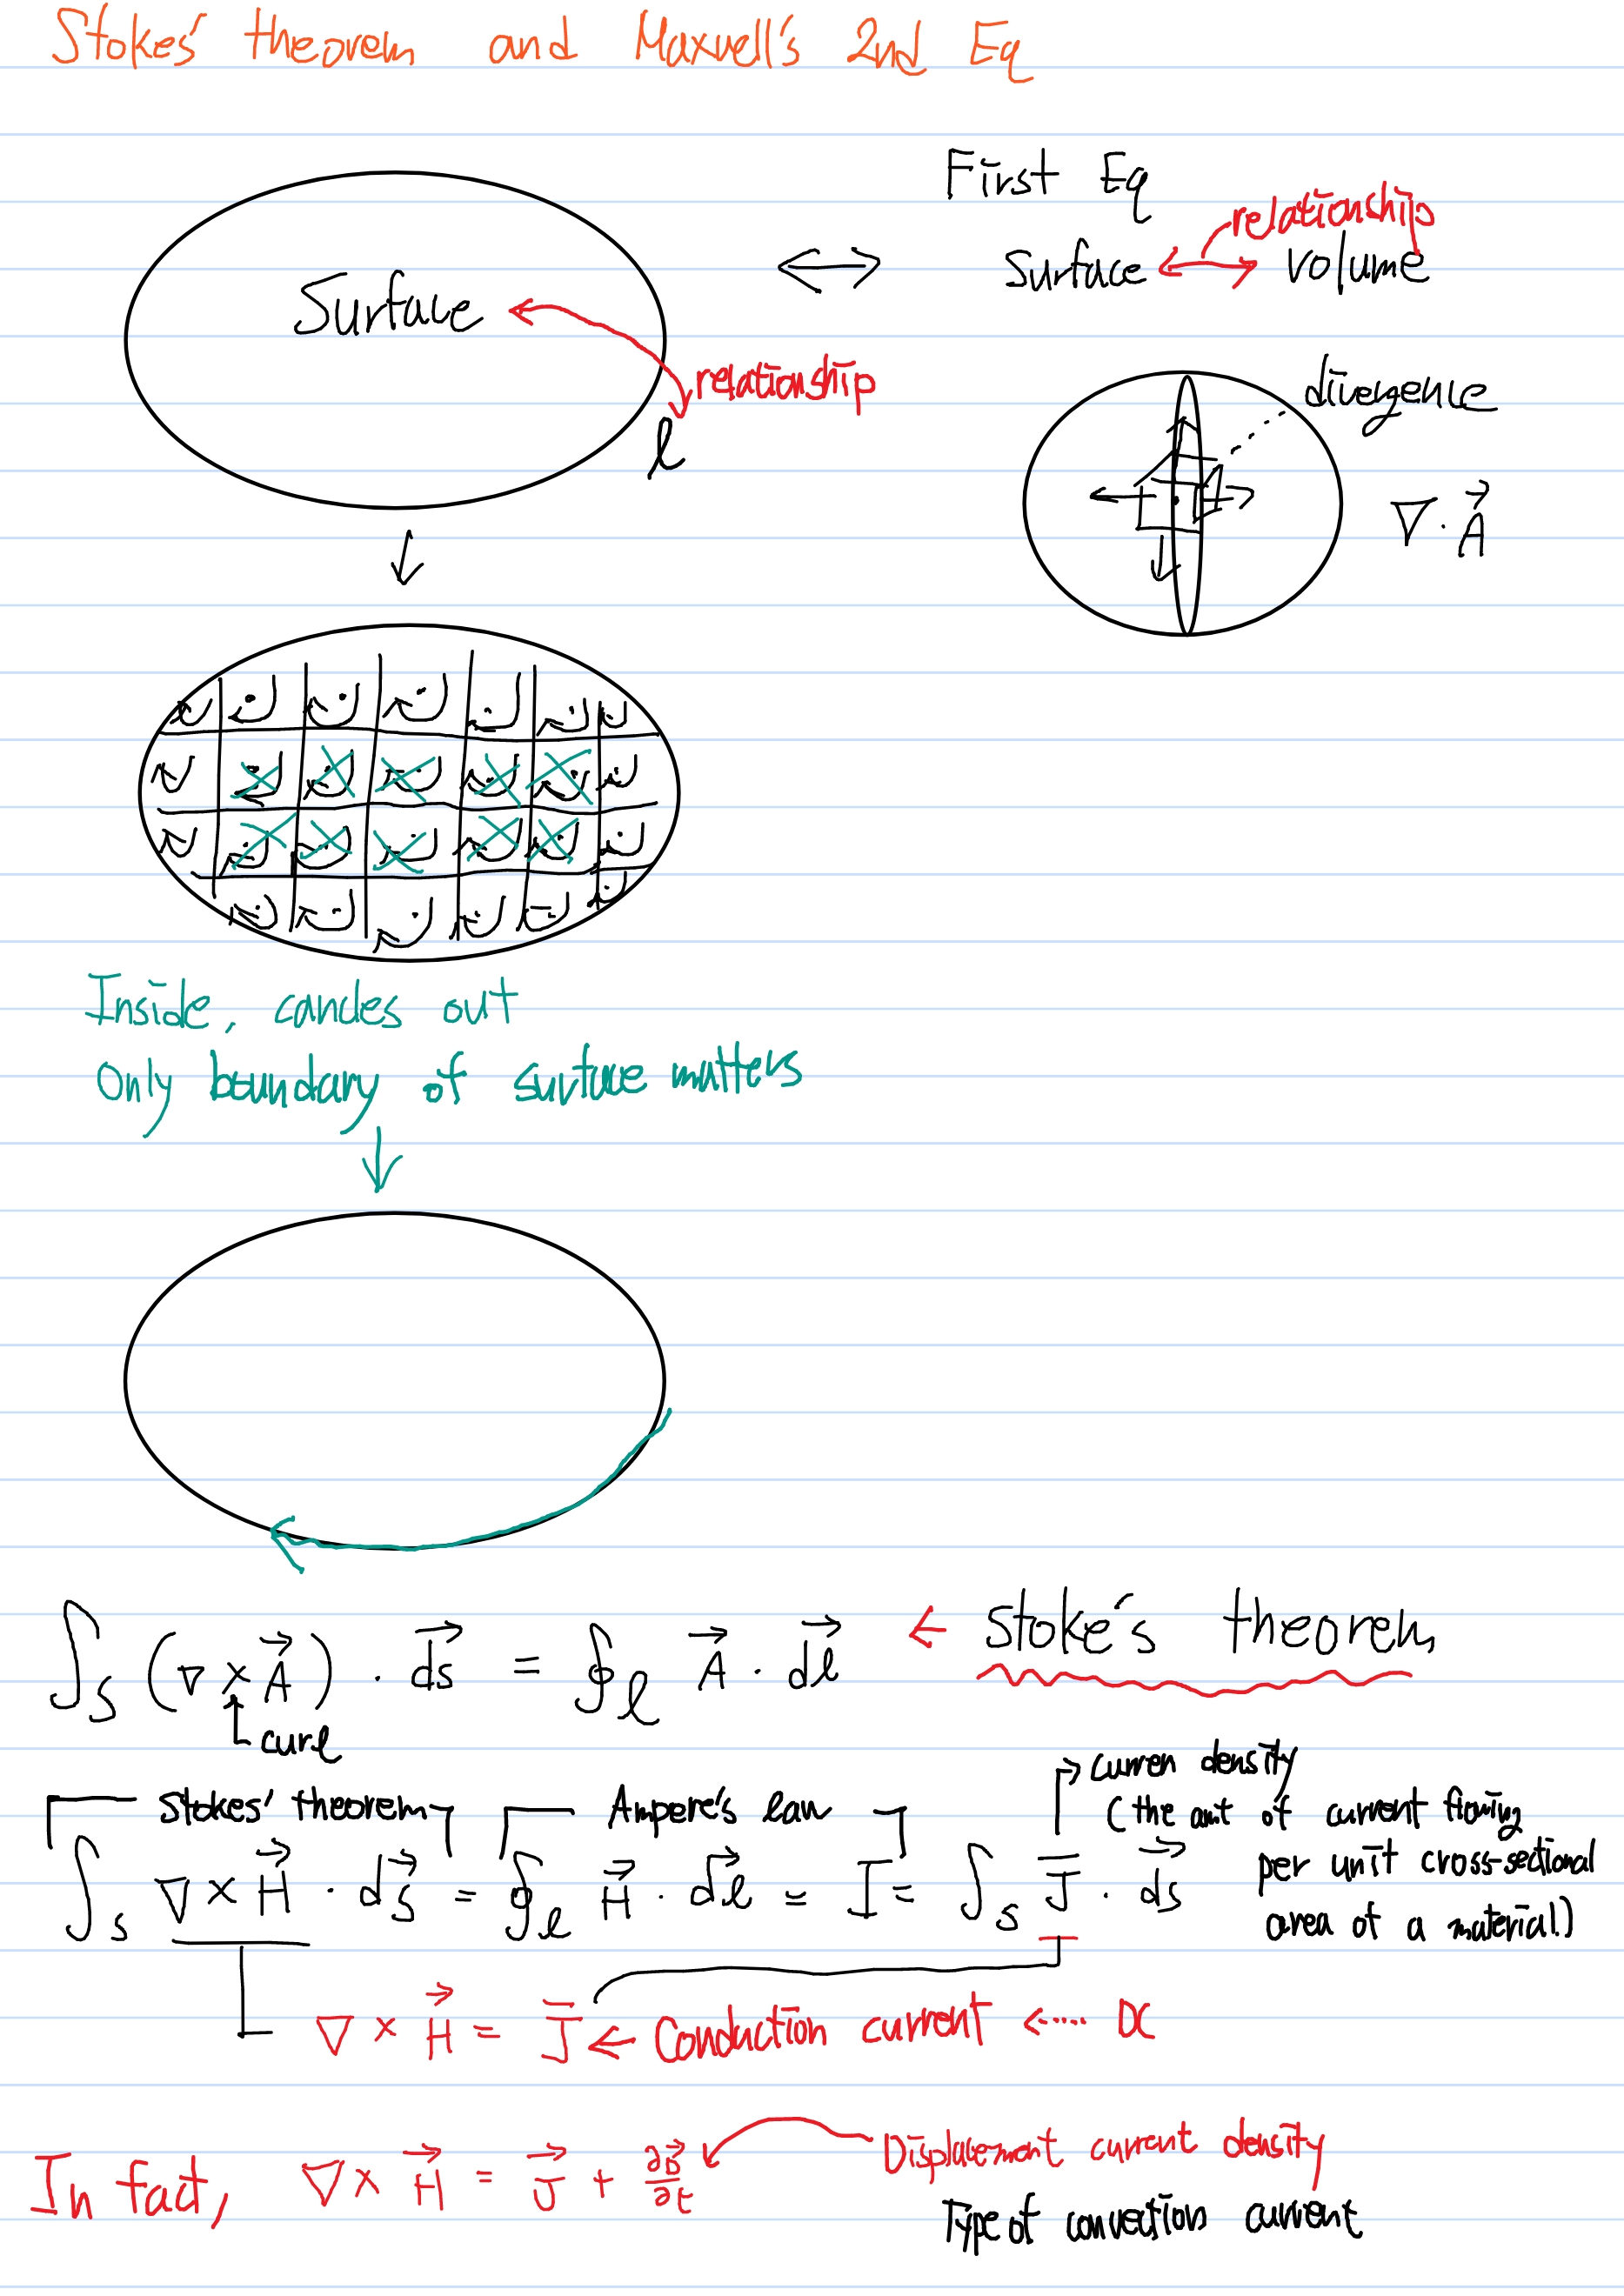 Stokes' theorem and Maxwell's 2nd Eq
First Eq
Surface ↔ volume
relationship
Surface
relationship
l
divergence
∇ · A⃗
Inside, cancles out
Only boundary of surface matters
∫s (∇ × A⃗) · ds⃗ = ∮l A⃗ · dl⃗ ← Stoke's theorem
curl
Stokes' theorem
Ampere's law
curren density
(the amt of current flowing
per unit cross-sectional
area of a material)
∫s ∇ × H⃗ · ds⃗ = ∮l H⃗ · dl⃗ = I = ∫s J̄ · ds⃗
∇ × H⃗ = J̄ ← Conduction current ← DC
In fact, ∇ × H⃗ = J⃗ + ∂D⃗/∂t
Displacement current density
Type of convection current